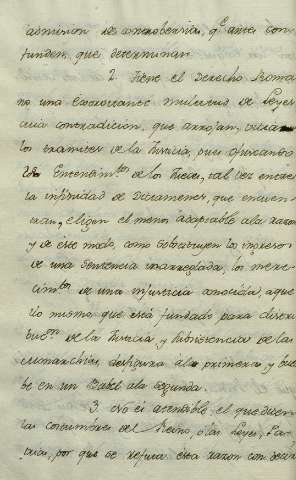 admision de controversia, qe. antes con
funden, que determinan.
2. Tiene el Derecho Roma
no una extravagante multitud de Leyes
cuia contradicion, que arrojan,
los tramites de la Justicia, pues ofuscando
los Entendimtos. de los Jueces, tal vez entre
la infinidad de Dictamenes, que encuen
tran, eligen el menos adaptable ala razon
y de este modo, como substituyen los ingresos
de una Sentencia inarreglada, los mere
cimtos. de una injusticia conocida, aque
llo mismo que está fundado para distri
bucon. de la Justicia, y subsistencia de las
Monarchias, desfigura ála primera, y buel
be en un Babel ala segunda.
3. No es aceptable, el que dicen
las costumbres del Reyno, ó las Leyes, Pa
trias, por que se refuta esta razon con decir